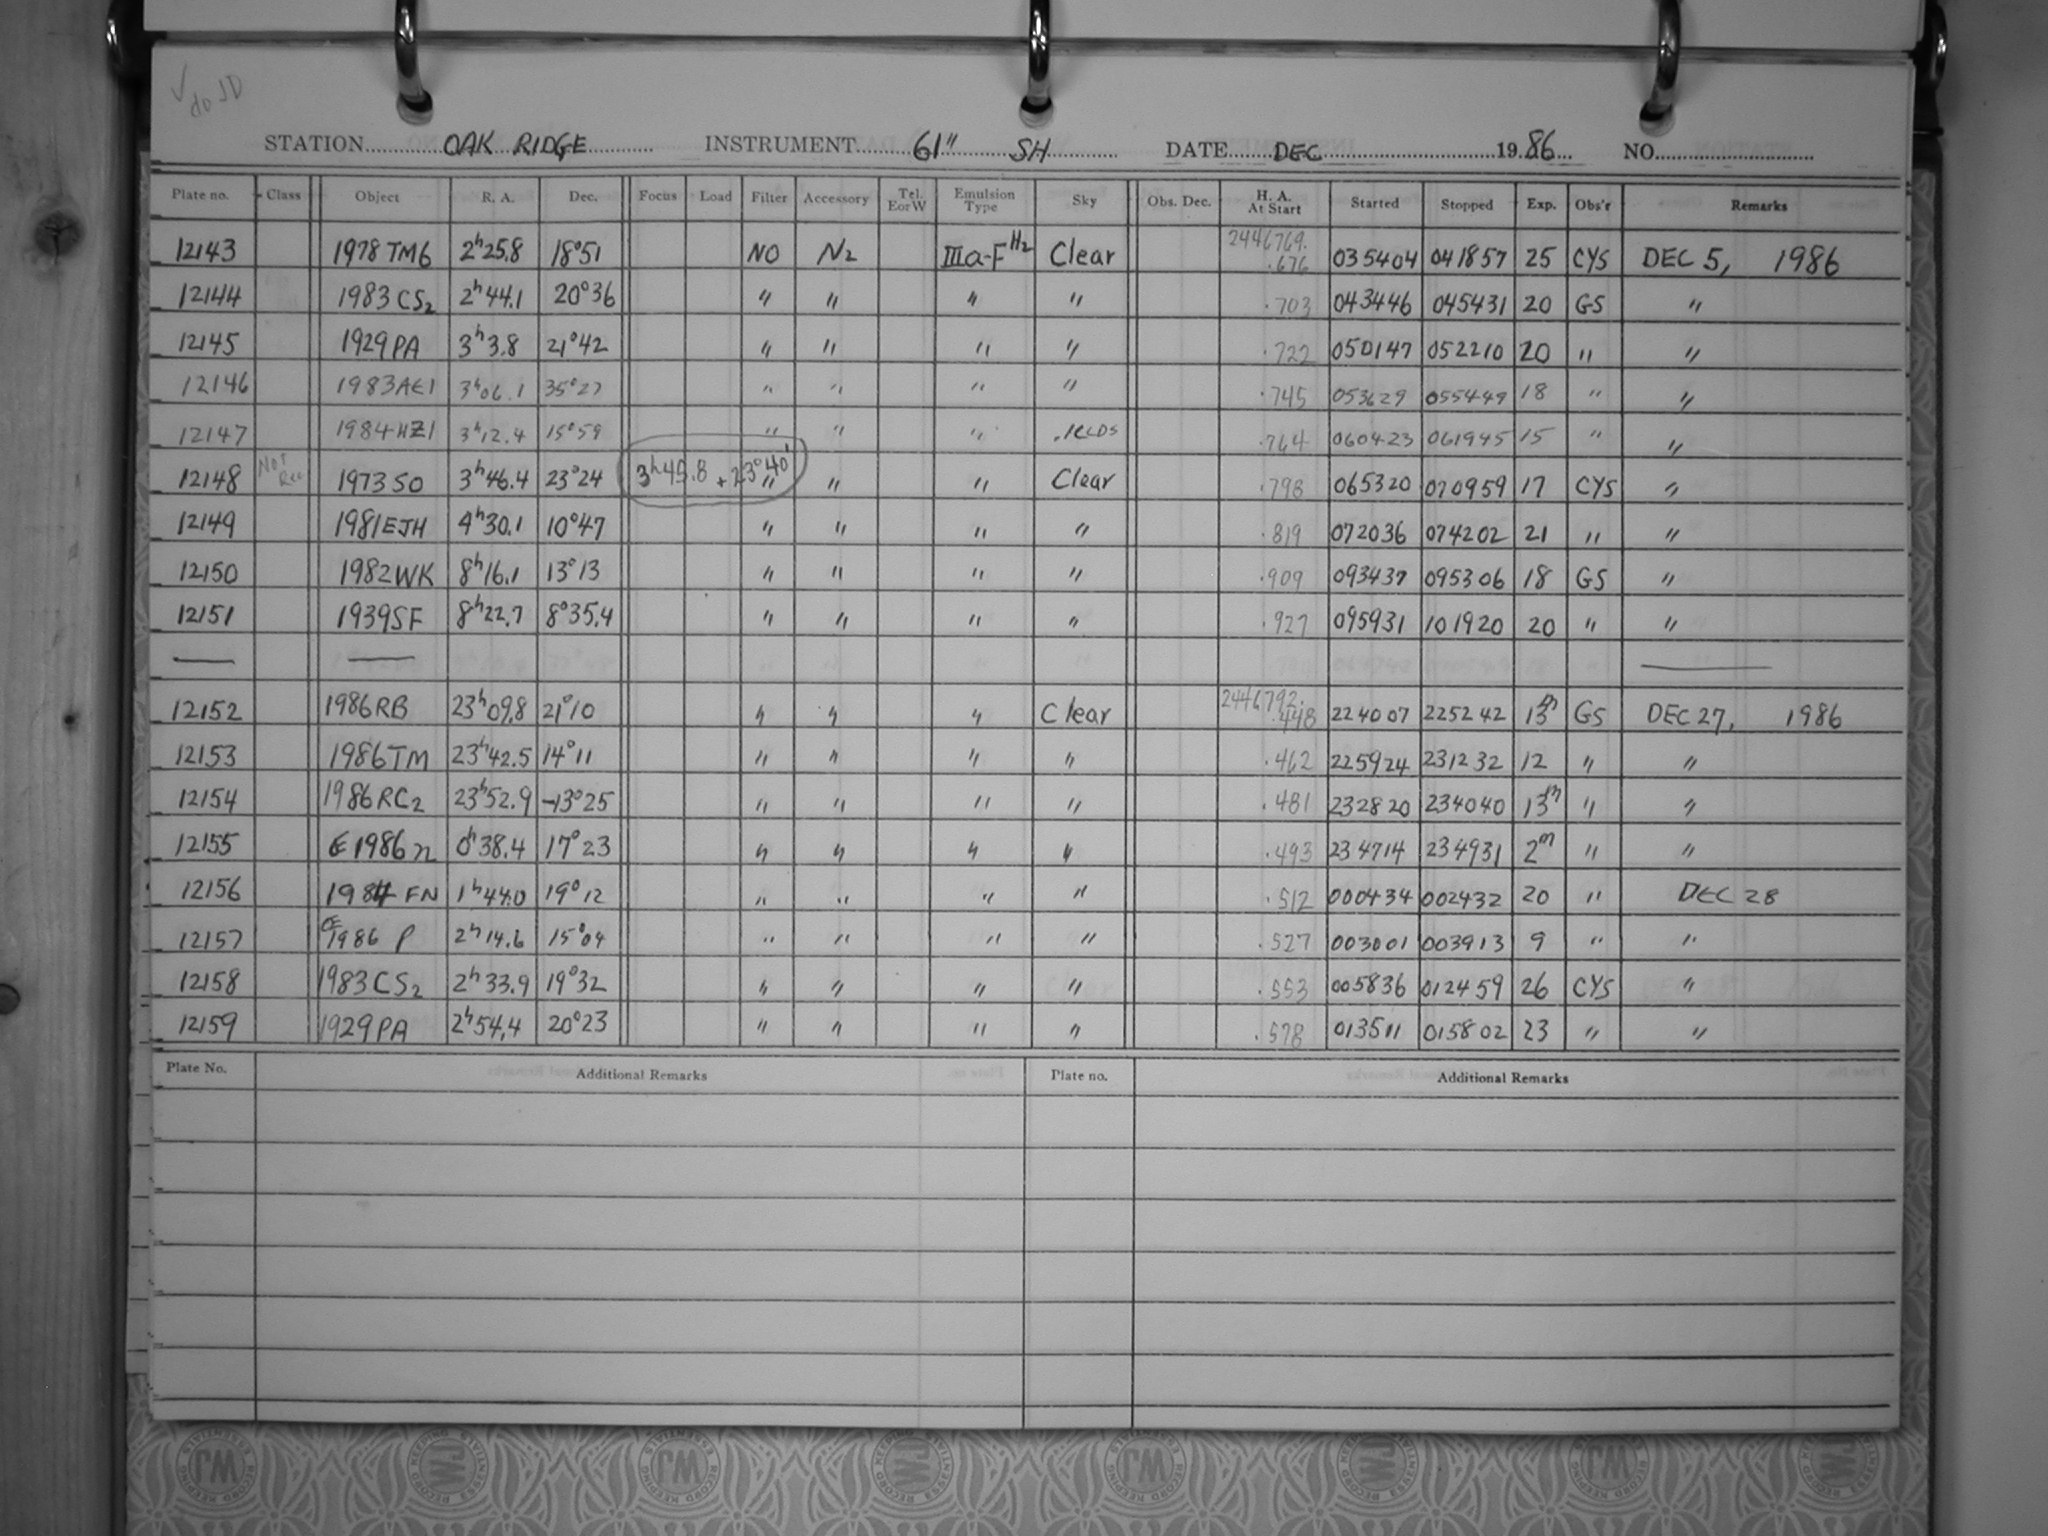 ✓ do JD
STATION OAK RIDGE INSTRUMENT 61" SH DATE DEC 1986 NO.
Plate no. Class Object R. A. Dec. Focus Load Filter Accessory Tel. E or W Emulsion Type Sky Obs. Dec. H. A. At Start Started Stopped Exp. Obs'r Remarks
12143 1978 TM6 2h25.8 18°51 NO N2 IIIa-F H2 Clear 2446769. .676 035404 041857 25 CYS DEC 5, 1986
12144 1983 CS2 2h44.1 20°36 " " " " .703 043446 045431 20 GS "
12145 1929 PA 3h3.8 21°42 " " " " .722 050147 052210 20 " "
12146 1983 AE1 3h06.1 35°27 " " " " .745 053629 055449 18 " "
12147 1984 HZ1 3h12.4 15°59 " " " .1CLDS .764 060423 061945 15 " "
12148 Not Rec 1973 SO 3h46.4 23°24 3h45.8 +23°40' " " " Clear .798 065320 070959 17 CYS "
12149 1981EJH 4h30.1 10°47 " " " " .819 072036 074202 21 " "
12150 1982WK 8h16.1 13°13 " " " " .909 093437 095306 18 GS "
12151 1939SF 8h22.7 8°35.4 " " " " .927 095931 101920 20 " "
12152 1986RB 23h09.8 21°10 " " " Clear 2446792. .448 224007 225242 13m GS DEC 27, 1986
12153 1986TM 23h42.5 14°11 " " " " .462 225924 231232 12 " "
12154 1986RC2 23h52.9 -13°25 " " " " .481 232820 234040 13m " "
12155 C 1986 n 0h38.4 17°23 " " " " .493 234714 234931 2m " "
12156 1984 FN 1h44.0 19°12 " " " " .512 000434 002432 20 " DEC 28
12157 C 1986 P 2h14.6 15°04 " " " " .527 003001 003913 9 " "
12158 1983 CS2 2h33.9 19°32 " " " " .553 005836 012459 26 CYS "
12159 1929 PA 2h54.4 20°23 " " " " .578 013511 015802 23 " "
Plate No. Additional Remarks Plate no. Additional Remarks